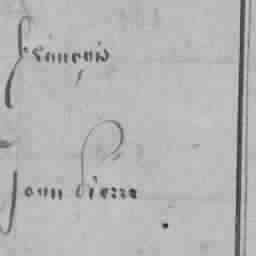 François
Jean Pierre